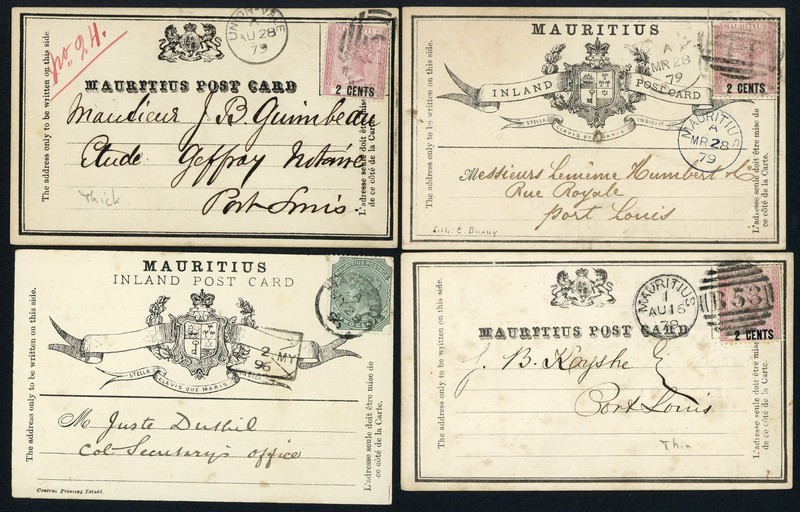 No. 24.
UNION-VALE
A
AU 28
79
MAURITIUS POST CARD
2 CENTS
The address only to be written on this side.
L'adresse seule doit être mise de
ce côté de la Carte.
Monsieur J B Guimbeau
Etude Geffroy Notaire
Port Louis.
Thick
MAURITIUS
A
MR 28
79
INLAND POST CARD
2 CENTS
STELLA CLAVISQUE MARIS INDICI
MAURITIUS
A
MR 28
79
The address only to be written on this side.
L'adresse seule doit être mise de
ce côté de la Carte.
Messieurs Lemième Humbert & Co
Rue Royale
Port Louis
Lith. E. Dupuy
MAURITIUS
INLAND POST CARD
MAURITIUS POSTAGE
STELLA CLAVIS QUE MARIS INDICI
2 MY
96
The address only to be written on this side.
L'adresse seule doit être mise de
ce côté de la Carte.
M Juste Duthil
Col. Secretary's office
Central Printing Establt.
MAURITIUS
1
AU 15
79
B53
MAURITIUS POST CARD
2 CENTS
The address only to be written on this side.
L'adresse seule doit être mise de
ce côté de la Carte.
J. B. Koyshe
Port Louis
Thin